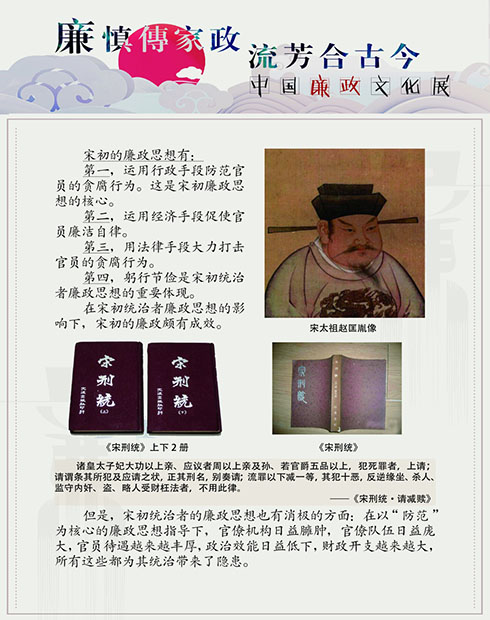 廉慎傳家政
流芳合古今
中国廉政文化展
宋初的廉政思想有：
第一，运用行政手段防范官
员的贪腐行为。这是宋初廉政思
想的核心。
第二，运用经济手段促使官
员廉洁自律。
第三，用法律手段大力打击
官员的贪腐行为。
第四，躬行节俭是宋初统治
者廉政思想的重要体现。
在宋初统治者廉政思想的影
响下，宋初的廉政颇有成效。
宋太祖赵匡胤像
宋刑統
（上）
宋刑統
（下）
《宋刑统》上下2册
《宋刑统》
诸皇太子妃大功以上亲、应议者周以上亲及孙、若官爵五品以上，犯死罪者，上请；
请谓条其所犯及应请之状，正其刑名，别奏请；流罪以下减一等，其犯十恶，反逆缘坐、杀人、
监守内奸、盗、略人受财枉法者，不用此律。
——《宋刑统·请减赎》
但是，宋初统治者的廉政思想也有消极的方面：在以“防范”
为核心的廉政思想指导下，官僚机构日益臃肿，官僚队伍日益庞
大，官员待遇越来越丰厚，政治效能日益低下，财政开支越来越大，
所有这些都为其统治带来了隐患。